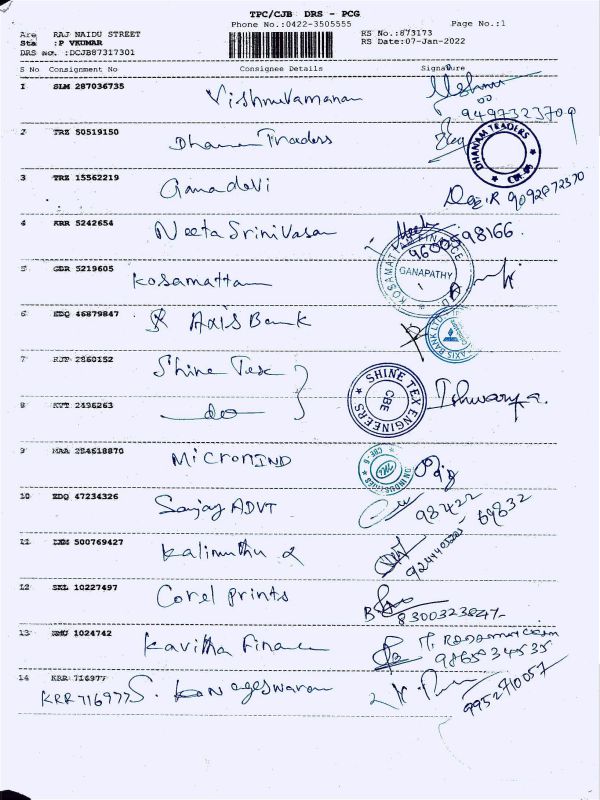 TPC/CJB DRS - PCG
Phone No.:0422-3505555 Page No.:1
Are RAJ NAIDU STREET RS No.:873173
Sta :P VKUMAR RS Date:07-Jan-2022
DRS No. :DCJB87317301
S No Consignment No Consignee Details Signature
1 SLM 287036735 Vishnuvamanan
9497323709
2 TRZ 50519150 Dhanam Traders DHANAM TRADERS
3 TRZ 15562219 Gamadevi 9092872370
4 KRR 5242654 Neeta Srinivasan 9600598166
5 GDR 5219605 Kosamattam KOSAMATTAM FINANCE GANAPATHY
6 EDQ 46879847 Axis Bank AXIS BANK LTD
7 RJT 2860152 Shine Tex SHINE TEX ENGINEERS CBE Ishwarya.
8 KVT 2496263 do
9 MAA 284618870 MICROMIND
10 EDQ 47234326 Sanjay ADVT 98422 69832
11 IXM 500769427 Kalimuthu
12 SKL 10227497 Corel prints
8300323847
13 1024742 Kavitha Finance
9865034535
14 KRR 716977
KRR716977 S. Nageswaran 9952710057